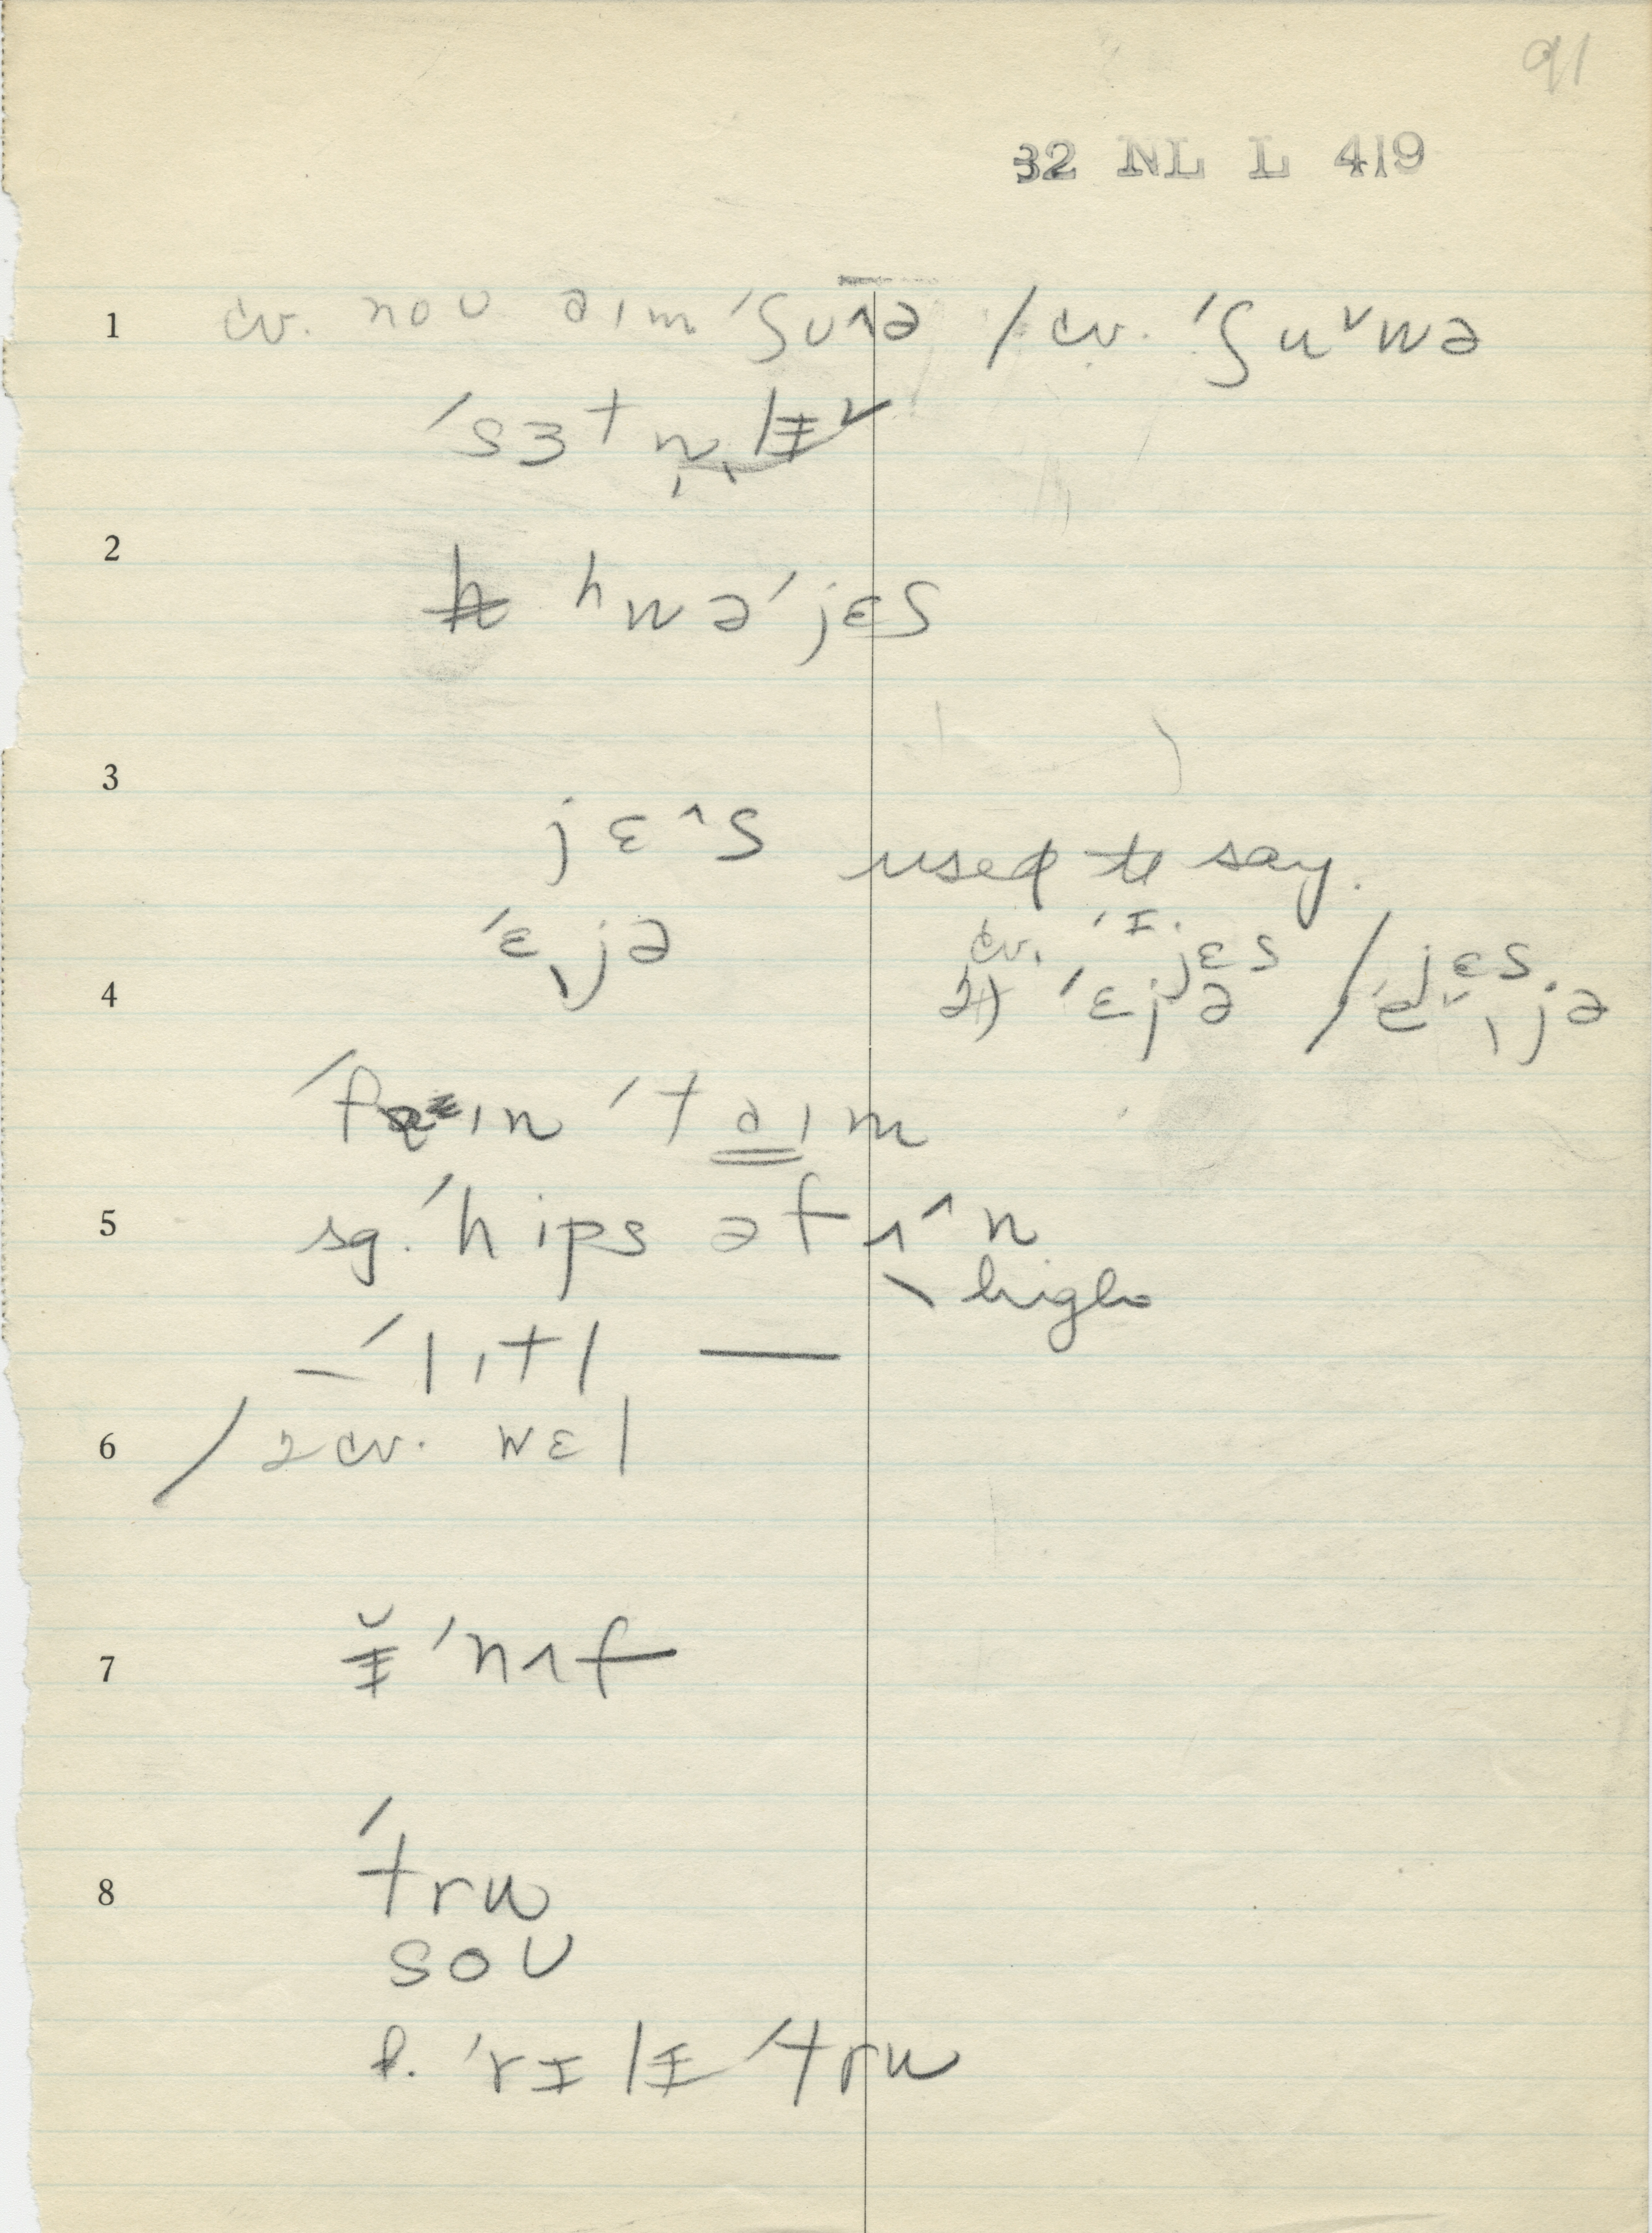 91
32 NL L 419
1 cv. noʊ aɪm ˈʃʊ^ə / cv. ˈʃuˇwə
ˈsɜtn̩ˌlɪˇ
2 hwəˈjɛs
3 jɛ^s used to say.
ˈɛˌjə cv. ˈɪ.jɛs / jɛs.
4 2) ˈɛjə / ˈeˇˌjə
ˈfɪn ˈtaɪm
5 sg. ˈhips əf ʌ^n
high
– ˈlɪtl —
6 / 2 cv. wɛl
7 ɪ̆ˈnʌf
8 ˈtru
soʊ
f. ˈrɪlɪ ˈtru